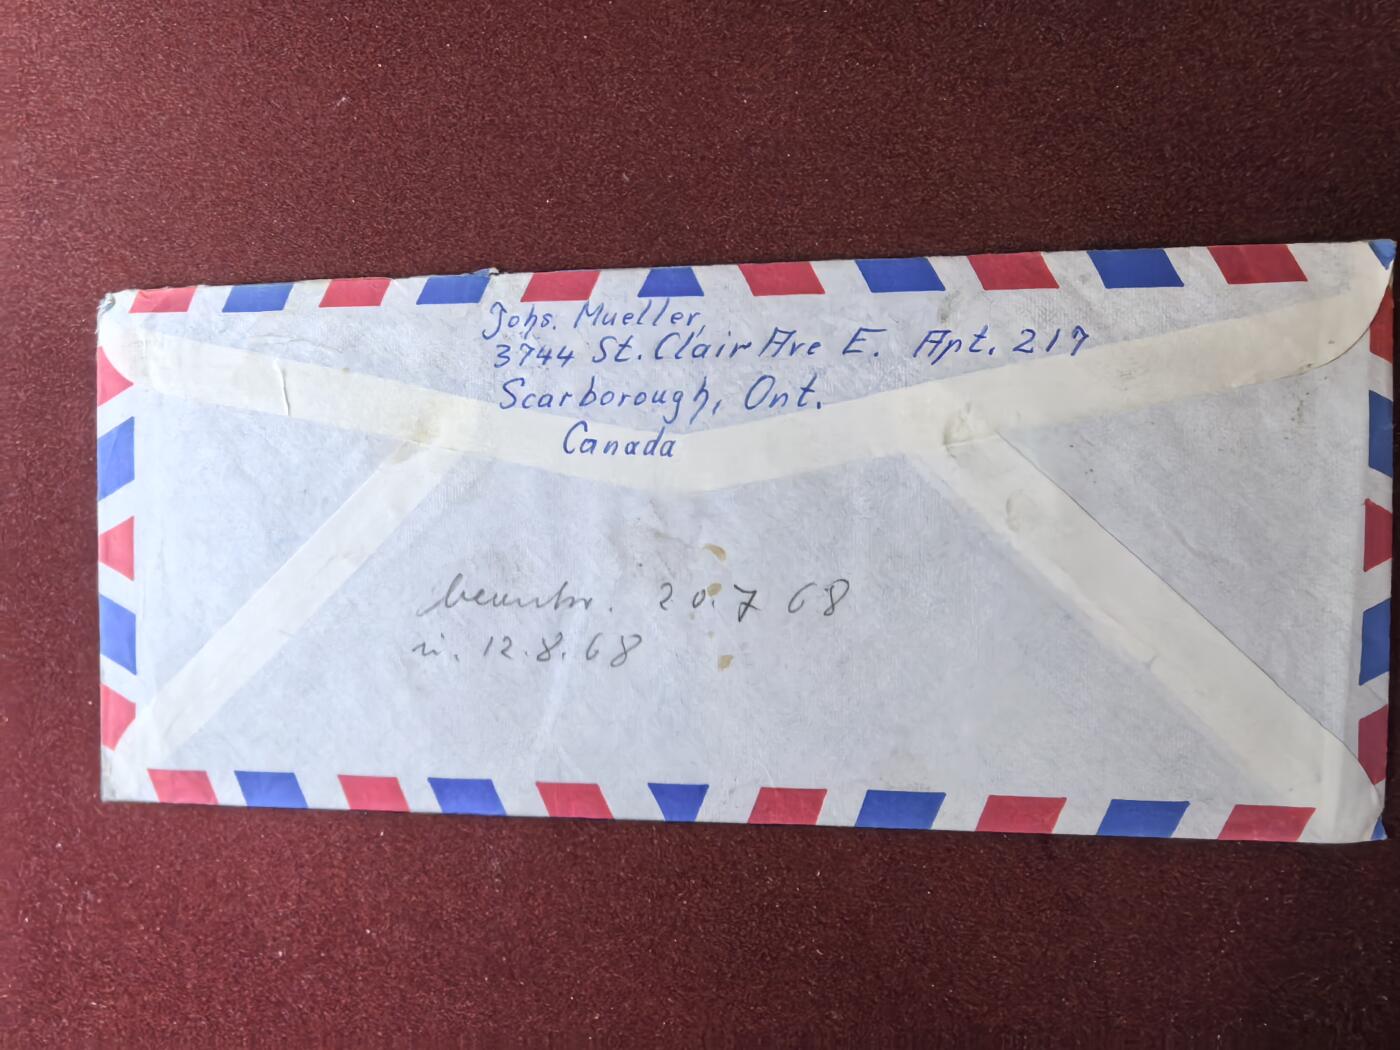 Johs. Mueller,
3744 St. Clair Ave E. Apt. 217
Scarborough, Ont.
Canada
beantw. 20.7 68
u. 12.8.68